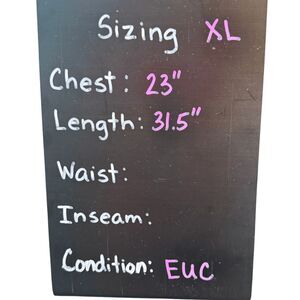 Sizing XL
Chest: 23"
Length: 31.5"
Waist:
Inseam:
Condition: EUC